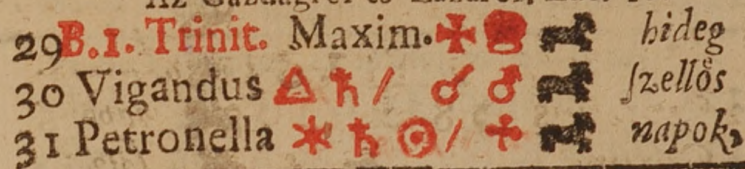 29 B. 1. Trinit. Maxim. ✠ hideg
30 Vigandus △ ♄ / ☌ ♂ ſzellős
31 Petronella ✶ ♄ ☉ / ✢ napok,